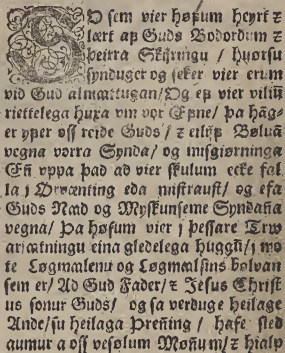 SO sem vier høfum heyrt ꝛ
lært af Guds Bodordum ꝛ
þeirra Skijringu / huørsu
synduger og seker vier erum
vid Gud almættugan/Og ef vier vilium̅
riettelega huxa vm vor Efne/ þa hāg-
er yfer oss reide Guds/ ꝛ eilijf Bøluā
vegna vorra Synda/ og misgiørninga
En̅ vppa þad ad vier skulum ecke fal
la j Ørvænting eda mistraust/ og efa
Guds Naad og Myskunseme Syndaña
vegna/ Þa høfum vier j þessare Trw
ariætningu eina gledelega huggun̅/ j mo
te Løgmaalenu og Løgmaalsins bølvan
sem er/ Ad Gud Fader/ ꝛ Jesus Christ
us sonur Guds/ og sa verduge heilage
Ande/su heilaga Þren̅ing / hafe sied
aumur a oss vesølum Møn̅um/ ꝛ hialp